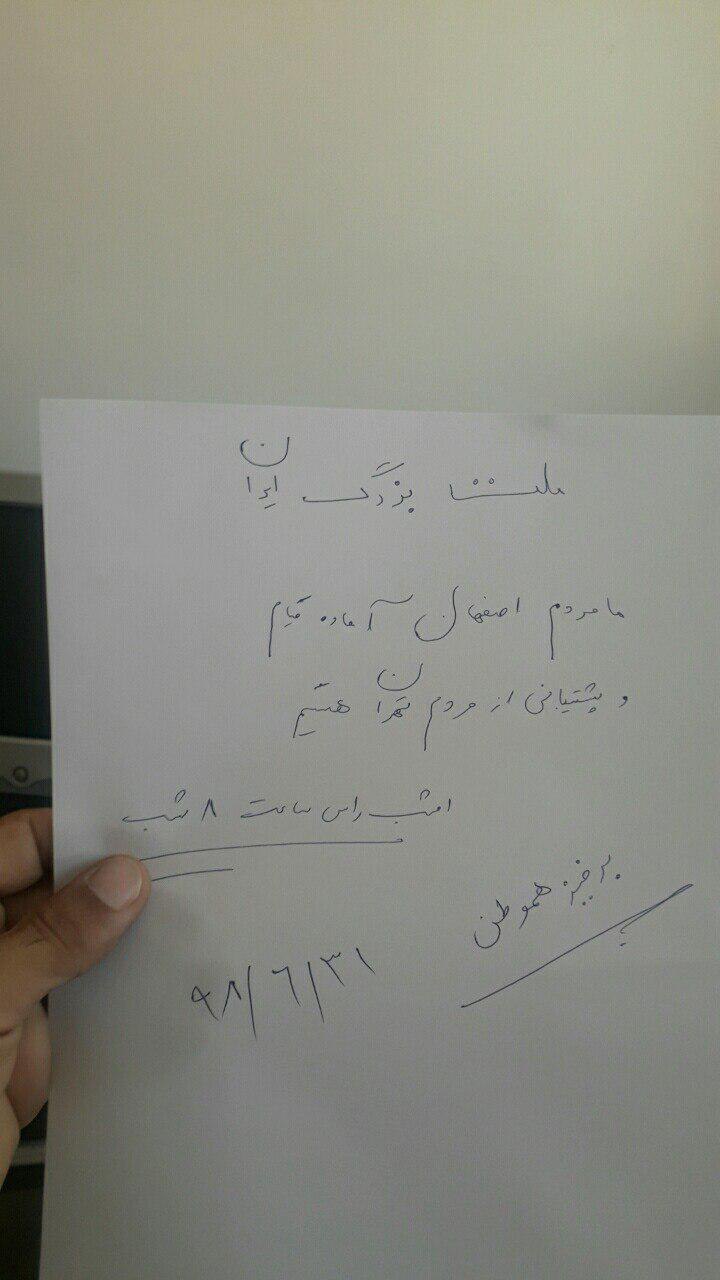 ملت بزرگ ایران
ما مردم اصفهان آماده قیام
و پشتیبانی از مردم تهران هستیم
امشب راس ساعت ۸ شب
برخیز هموطن
۹۸/۶/۳۱